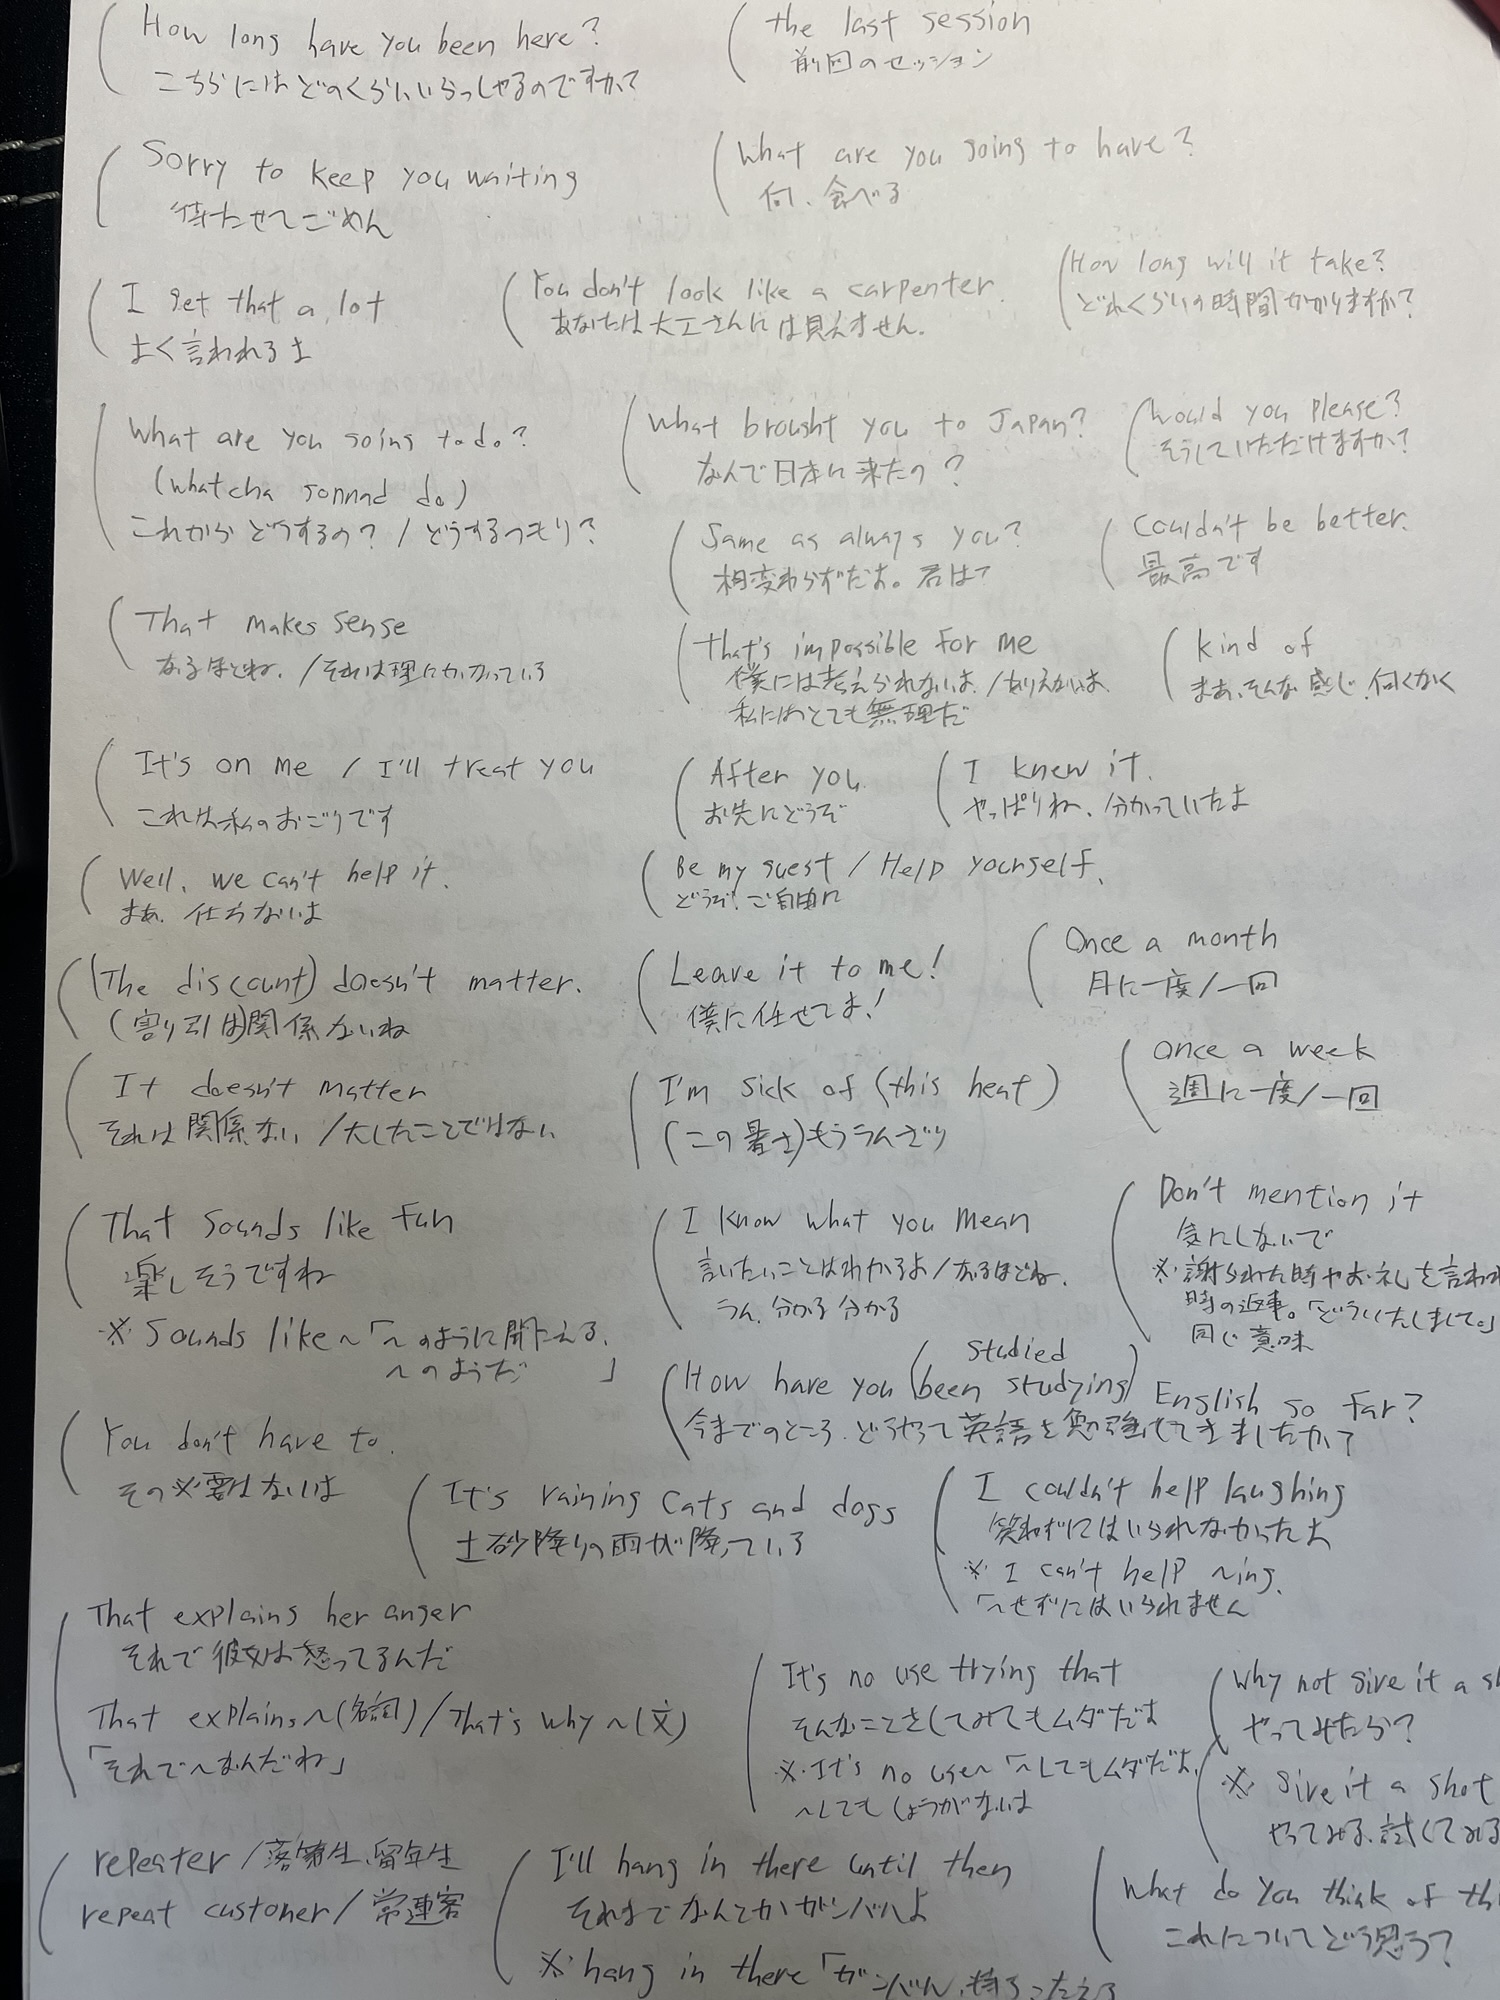 How long have you been here?
こちらにはどのくらいいらっしゃるのですか?
the last session
前回のセッション
Sorry to keep you waiting
待たせてごめん
What are you going to have?
何、食べる
I get that a lot
よく言われるよ
You don't look like a carpenter.
あなたは大工さんには見えません.
How long will it take?
どれくらいの時間かかりますか?
What are you going to do?
(whatcha gonnad do)
これからどうするの? / どうするつもり?
What brought you to Japan?
なんで日本に来たの?
Would you please?
そうしていただけますか?
Same as always you?
相変わらずだよ。君は?
Couldn't be better.
最高です
That makes sense
なるほどね. / それは理にかなっている
That's impossible for me
僕には考えられないよ. / ありえないよ
私にはとても無理だ
kind of
まあ、そんな感じ. 何となく
It's on me / I'll treat you
これは私のおごりです
After you.
お先にどうぞ
I knew it.
やっぱりね、分かっていたよ
Well, we can't help it.
まあ. 仕方ないよ
Be my guest / Help yourself.
どうぞ! ご自由に
(The discount) doesn't matter.
(割り引は)関係ないね
Leave it to me!
僕に任せてよ!
Once a month
月に一度/一回
It doesn't matter
それは関係ない / 大したことではない
I'm sick of (this heat)
(この暑さ)もううんざり
once a week
週に一度/一回
That sounds like fun
楽しそうですね
※ Sounds like ~「~のように聞こえる.
~のようだ 」
I know what you mean
言いたいことはわかるよ / なるほどね.
うん. 分かる 分かる
Don't mention it
気にしないで
※謝られた時やお礼を言われ
時の返事。「どういたしまして。」
同じ意味
How have you (been studying) English so far?
studied
今までのところ. どうやって英語を勉強してきましたか?
You don't have to.
その必要はないよ
It's raining cats and dogs
土砂降りの雨が降っている
I couldn't help laughing
笑わずにはいられなかったよ
※ I can't help ~ing.
「~せずにはいられません
That explains her anger
それで彼女は怒ってるんだ
That explains ~(名詞) / That's why ~(文)
「それで~なんだね」
It's no use trying that
そんなことをしてみてもムダだよ
※ It's no use~「~してもムダだよ.
~してもしょうがないよ
Why not give it a sh
やってみたら?
※ give it a shot
やってみる. 試してみる
repeater / 落第生、留年生
repeat customer / 常連客
I'll hang in there until then
それまでなんとかガンバルよ
※ hang in there「ガンバル、持ちこたえる
What do you think of thi
これについてどう思う?